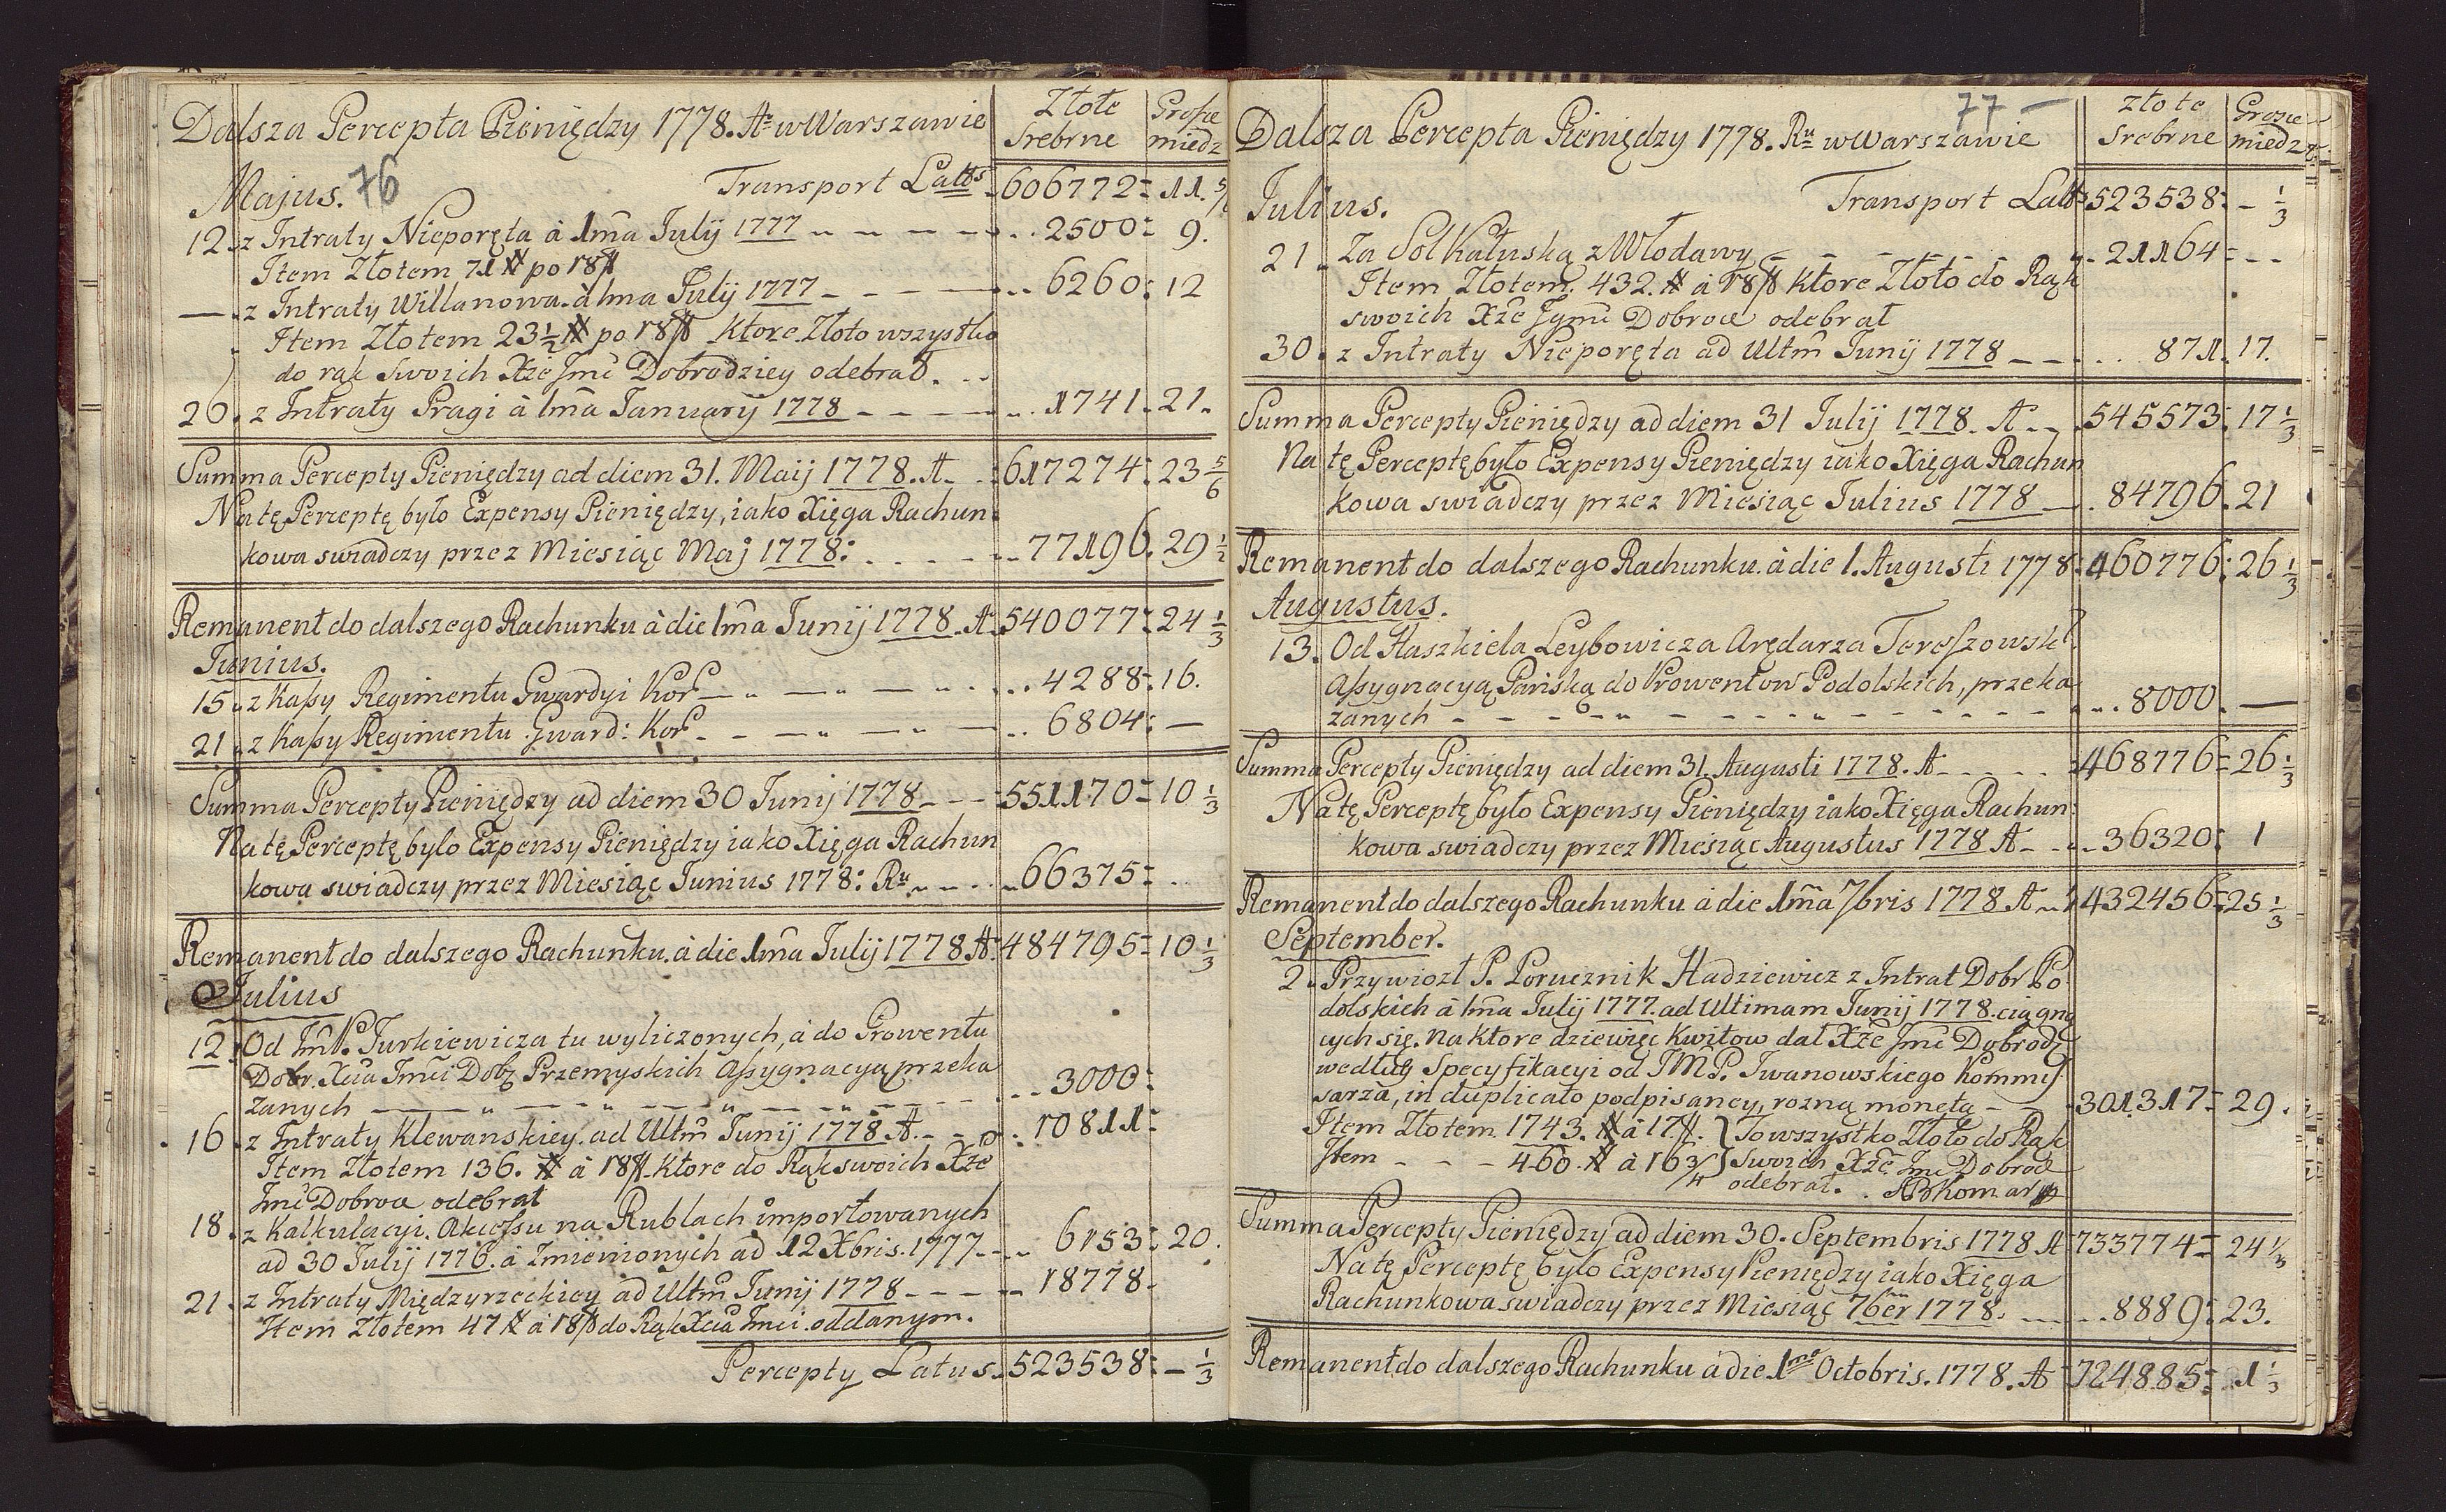 Dalsza Percepta Pieniędzy 1778. Aº w Warszawie
Złote Srebrne
Grosze miedz
76
Majus. Transport Latus 606772 11. 5/6
12. z Intraty Nieporęta à 1ma Julij 1777 2500 9.
Item Złotem 71 # po 18
— z Intraty Willanowa à 1ma Julij 1777 6260: 12
Item Złotem 23 1/2 # po 18 Ktore Złoto wszystko
do rąk Swoich Xże Jmć Dobrodziey odebrał.
20. z Intraty Pragi à 1ma Januarij 1778 1741. 21.
Summa Percepty Pieniędzy ad diem 31. Maij 1778. A. 617274: 23 5/6
Na tę Perceptę było Expensy Pieniędzy, iako Xięga Rachun
kowa swiadczy przez Miesiąc Maj 1778: 77196. 29 1/2
Remanent do dalszego Rachunku à die 1ma Junij 1778. A. 540077: 24 1/3
Junius.
15. z Kassy Regimentu Gwardyi Kor 4288: 16.
21. z Kassy Regimentu Gward: Kor 6804: —
Summa Percepty Pieniędzy ad diem 30 Junij 1778 551170 10 1/3
Na tę Perceptę było Expensy Pieniędzy iako Xięga Rachun
kowa swiadczy przez Miesiąc Junius 1778: Ru 66375
Remanent do dalszego Rachunku. à die 1ma Julij 1778 A: 484795 10 1/3
Julius
12. Od JmP. Jurkiewicza tu wyliczonych, à do Prowentu
Dobr. Xcia Jmci Dobr Przemyskich Assygnacyą przeka
zanych 3000
16. z Intraty Klewanskiey. ad Ultm Junij 1778 A. 10811
Item Złotem 136. # à 18. ktore do Rąk swoich Xże
Jmć Dobroa odebrał
18. z Kalkulacyi. Akcessu na Rublach importowanych
ad 30 Julij 1776. à Zmienionych ad 12 Xbris. 1777. 6153: 20.
21. z Intraty Międzyrzeckiey ad Ultm Junij 1778 18778.
Item Złotem 47 # à 18 do Rąk Xcia Jmci oddanym.
Percepty Latus. 523538: – 1/3
77 —
Dalsza Percepta Pieniędzy 1778. Ru w Warszawie
złote Srebrne
Grosze miedz
Julius. Transport Latus 523538: – 1/3
21. Za Sol Kałuską z Włodawy 21164 - -
Item Złotem. 432. # à 18 Ktore Złoto do Rąk
swoich Xże Jgmć Dobroa odebrał
30. z Intraty Nieporęta ad Ultm Junij 1778 871. 17.
Summa Percepty Pieniędzy ad diem 31 Julij 1778. A. 545573: 17 1/3
Na tę Perceptę było Expensy Pieniędzy iako Xięga Rachun
kowa swiadczy przez Miesiąc Julius 1778 84796. 21
Remanent do dalszego Rachunku. à die 1. Augusti 1778: 460776: 26 1/3
Augustus.
13. Od Haszkiela Leybowicza Arędarza Tereszowsk
Assygnacyą Pańską do Prowentow Podolskich, przeka
zanych 8000. —
Summa Percepty Pieniędzy ad diem 31. Augusti 1778. A. 468776 26 1/3
Na tę Perceptę było Expensy Pieniędzy iako Xięga Rachun:
kowa swiadczy przez Miesiąc Augustus 1778 A. 36320: 1
Remanent do dalszego Rachunku à die 1ma 7bris 1778 A 432456 25 1/3
September.
2. Przywiozł P. Porucznik Hadziewicz z Intrat Dobr Po
dolskich à 1ma Julij 1777. ad Ultimam Junij 1778. ciągną
cych się. Na ktore dziewięc Kwitow dał Xże Jmć Dobrodz
według Specyfikacyi od JMP. Iwanowskiego Kommis
sarza, in duplicato podpisaney, rozną monetą 301317 29.
Item Złotem. 1743. # à 17. } To wszystko Złoto do Rąk
Item 460. # à 16 3/4 } Swoich Xże Jmć Dobrod
odebrał.
Summa Percepty Pieniędzy ad diem 30. Septembris 1778 A 733774 24 1/3
Na tę Perceptę było Expensy Pieniędzy iako Xięga
Rachunkowa swiadczy przez Miesiąc 7ber 1778. 8889: 23.
Remanent do dalszego Rachunku à die 1ma Octobris. 1778. A 724885 1 1/3